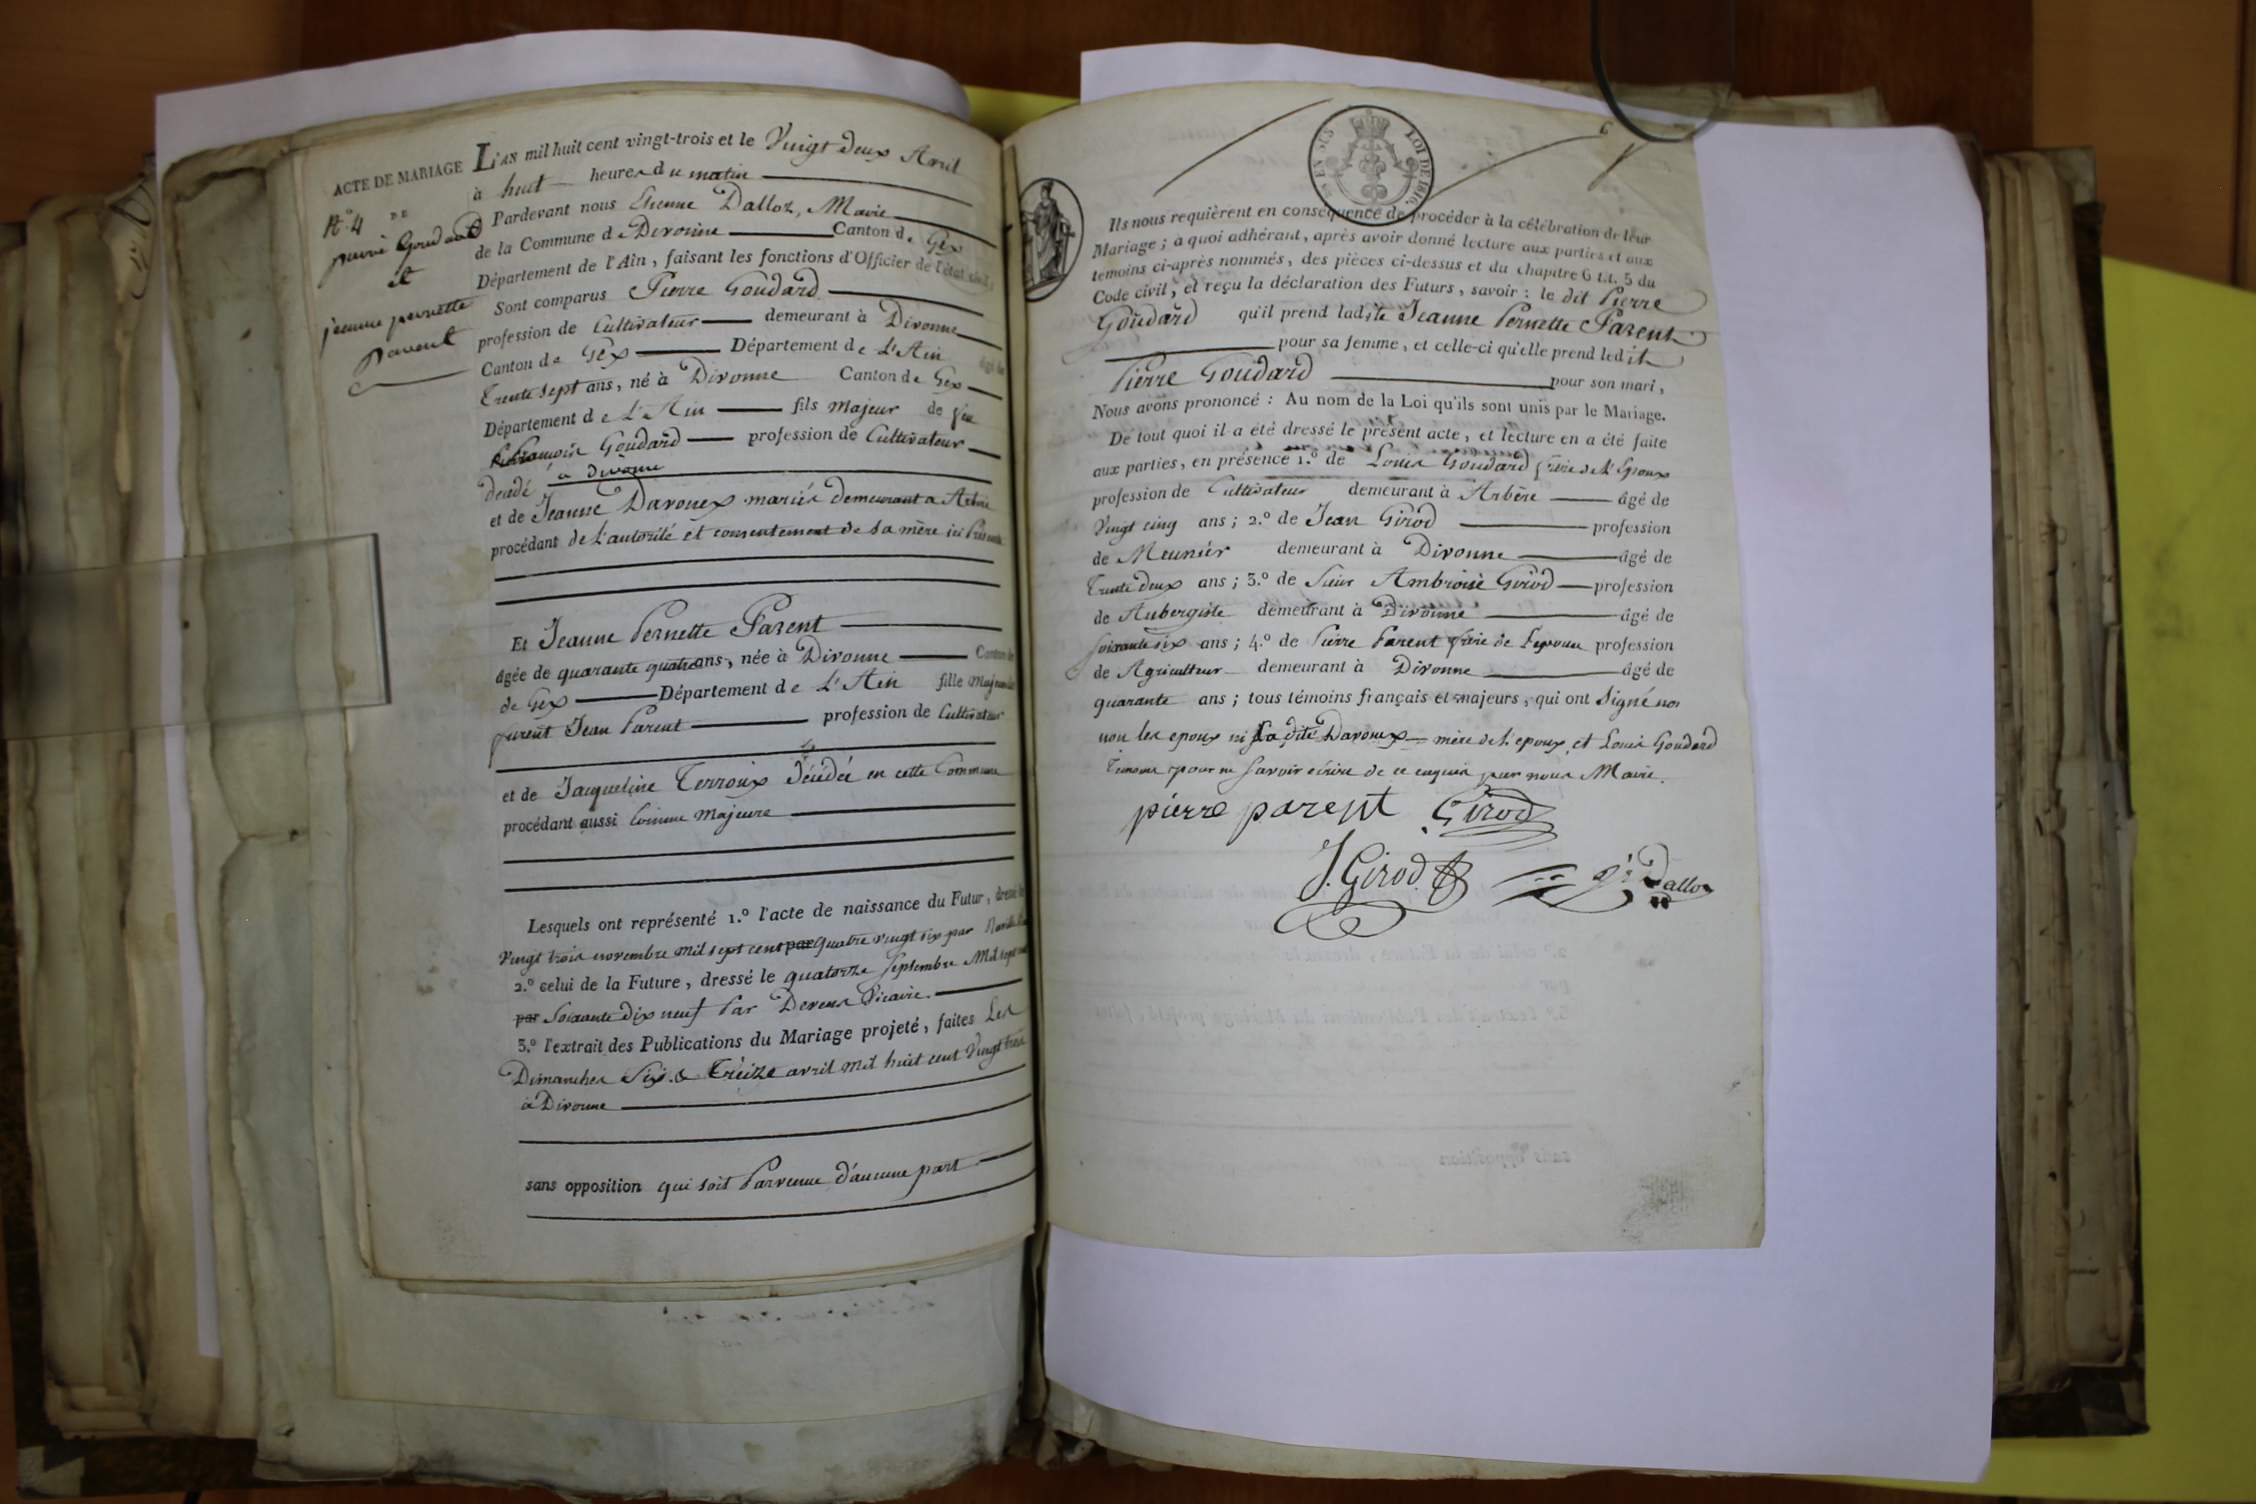 ACTE DE MARIAGE
N.º 4
DE
pierre Goudard
et
jeanne pernette
parent
L'AN mil huit cent vingt-trois et le Vingt deux Avril
à huit heures du matin
Pardevant nous Etienne Dalloz, Maire
de la Commune de Divonne Canton de Gex
Département de l'Ain, faisant les fonctions d'Officier de l'état civil,
Sont comparus Pierre Goudard
profession de Cultivateur demeurant à Divonne
Canton de Gex Département de L'Ain âgé de
Trente sept ans, né à Divonne Canton de Gex
Département de L'Ain fils majeur de feu
Goudard profession de Cultivateur
décédé à divonne
et de Jeanne Davoux mariés demeurant a Arbère
procédant de l'autorité et consentement de sa mère ici Présente
Et Jeanne Pernette Parent
âgée de quarante quatre ans, née à Divonne Canton
de Gex Département de L'Ain fille Majeure
furent Jean Parent profession de Cultivateur
et de Jacqueline Terroux décédée en cette Commune
procédant aussi Comme Majeure
Lesquels ont représenté 1.º l'acte de naissance du Futur, dressé le
Vingt trois novembre mil sept cent par quatre vingt six par
2.º celui de la Future, dressé le quatorze Septembre Mil sept cent
par Soixante dix neuf Par Vicaire.
3.º l'extrait des Publications du Mariage projeté, faites Les
Dimanches Six & Treize avril mil huit cent Vingt trois
à Divonne
sans opposition qui soit Parvenue d'aucune part
EN SUS
LOI DE 1816.
6
Ils nous requièrent en conséquence de procéder à la célébration de leur
Mariage; à quoi adhérant, après avoir donné lecture aux parties et aux
temoins ci-après nommés, des pièces ci-dessus et du chapitre 6 t.t. 5 du
Code civil, et reçu la déclaration des Futurs, savoir: le dit Pierre
Goudard qu'il prend ladite Jeanne Pernette Parent
pour sa femme, et celle-ci qu'elle prend ledit
Pierre Goudard pour son mari,
Nous avons prononcé: Au nom de la Loi qu'ils sont unis par le Mariage.
De tout quoi il a été dressé le présent acte, et lecture en a été faite
aux parties, en présence 1.º de Louis Goudard frère de l'Epoux
profession de Cultivateur demeurant à Arbère âgé de
Vingt cinq ans; 2.º de Jean Girod profession
de Meunier demeurant à Divonne âgé de
Trente Deux ans; 3.º de Sieur Ambroise Girod profession
de Aubergiste demeurant à Divonne âgé de
Soixante six ans; 4.º de Pierre Parent frère de l'epouse profession
de Agriculteur demeurant à Divonne âgé de
quarante ans; tous témoins français et majeurs, qui ont Signé nos
non les epoux ni la dite Davoux mère de l'epoux, et Louis Goudard
Temoins pour ne Savoir écrire de ce enquis par nous Maire.
pierre parent Girod
J. Girod Dalloz